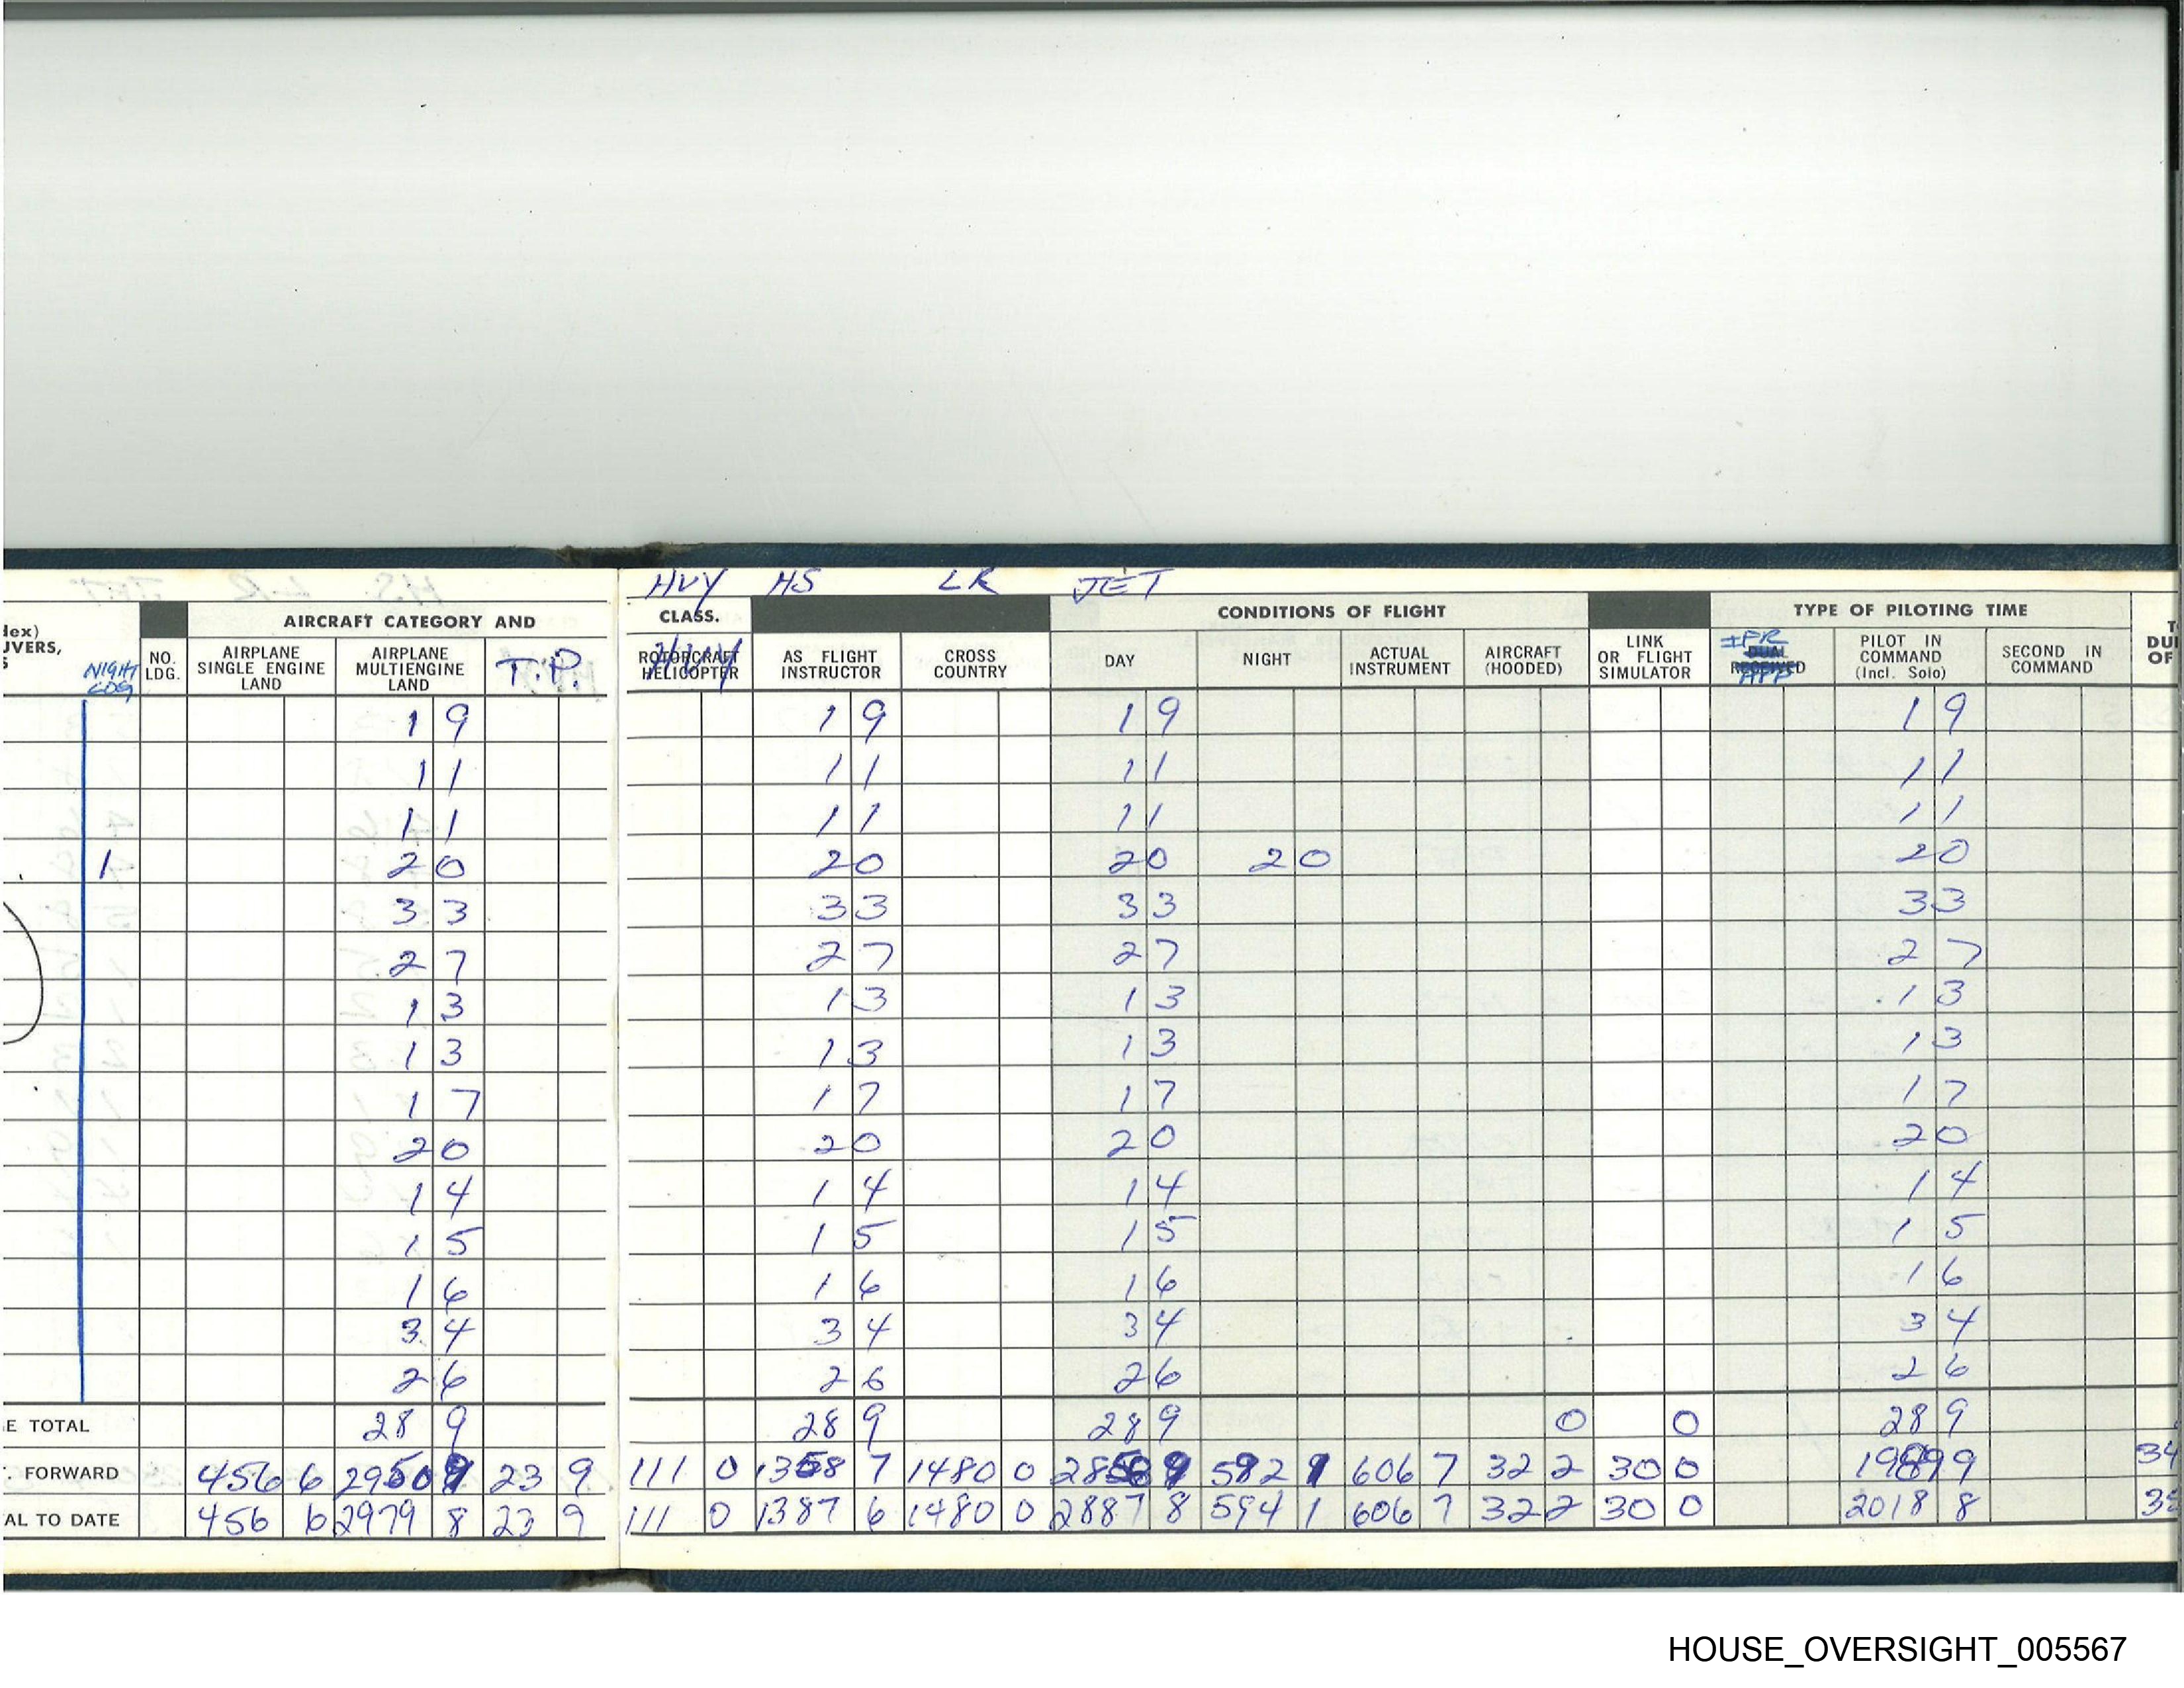 HVY HS LR JET
AIRCRAFT CATEGORY AND CLASS. CONDITIONS OF FLIGHT TYPE OF PILOTING TIME
NIGHT LDG NO. LDG. AIRPLANE SINGLE ENGINE LAND AIRPLANE MULTIENGINE LAND T.P. ROTORCRAFT HELICOPTER HVY AS FLIGHT INSTRUCTOR CROSS COUNTRY DAY NIGHT ACTUAL INSTRUMENT AIRCRAFT (HOODED) LINK OR FLIGHT SIMULATOR IFR DUAL RECEIVED APP PILOT IN COMMAND (Incl. Solo) SECOND IN COMMAND
1 9 1 9 1 9 1 9
1 1 1 1 1 1 1 1
1 1 1 1 1 1 1 1
1 2 0 2 0 2 0 2 0 2 0
3 3 3 3 3 3 3 3
2 7 2 7 2 7 2 7
1 3 1 3 1 3 1 3
1 3 1 3 1 3 1 3
1 7 1 7 1 7 1 7
2 0 2 0 2 0 2 0
1 4 1 4 1 4 1 4
1 5 1 5 1 5 1 5
1 6 1 6 1 6 1 6
3 4 3 4 3 4 3 4
2 6 2 6 2 6 2 6
E TOTAL 28 9 28 9 28 9 0 0 28 9
. FORWARD 456 6 2950 9 23 9 111 0 1358 7 1480 0 606 7 32 2 30 0 1989 9 34
AL TO DATE 456 6 2979 8 23 9 111 0 1387 6 1480 0 2887 8 594 1 606 7 32 2 30 0 2018 8
HOUSE_OVERSIGHT_005567